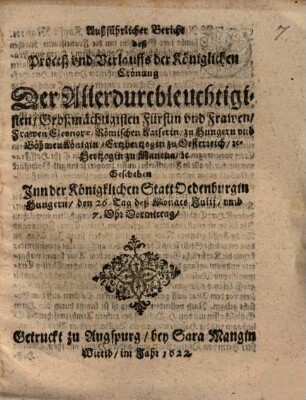 7.
Außführlicher Bericht
deß
Proceß vnd Verlauffs der Königlichen
Crönung
Der Allerdurchleuchtigi-
sten/ Großmächtigisten Fürstin vnd Frawen/
Frawen Eleonore/ Römischen Kaiserin/ zu Hungern vnd
Böhmen Königin/ Ertzhertzogin zu Oesterreich/ ꝛc
Hertzogin zu Mantua/ ꝛc
Geschehen
Inn der Königklichen Statt Oedenburg in
Hungern/ den 26 Tag deß Monats Julij/ vmb
7. Vhr Vormittag/
Getruckt zu Augspurg/ bey Sara Mangin
Wittib/ im Jahr 1622